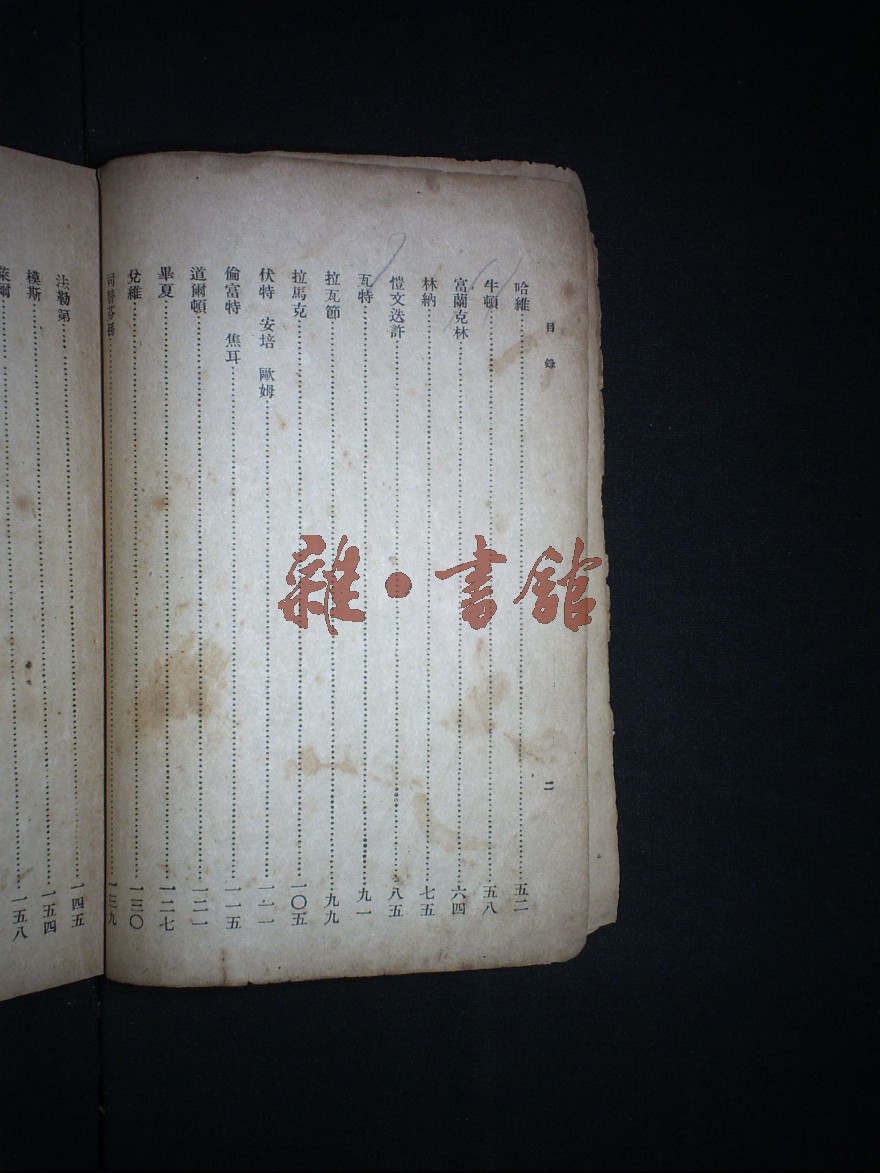 目錄
二
哈維 五二
牛頓 五八
富蘭克林 六四
林納 七五
愷文迭許 八五
瓦特 九一
拉瓦節 九九
拉馬克 一〇五
伏特 安培 歐姆 一一一
倫富特 焦耳 一一五
道爾頓 一二一
畢夏 一二七
兌維 一三〇
司蒂芬孫 一三九
法勒第 一四五
模斯 一五四
萊爾 一五八
雜·書館